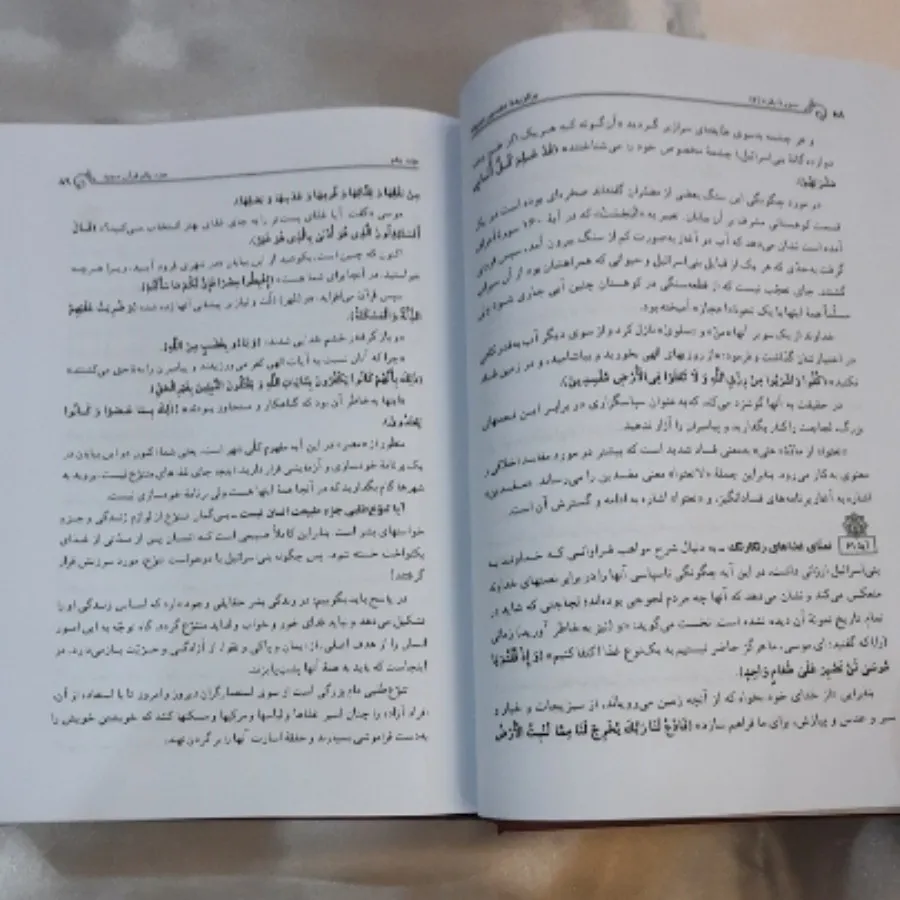 ۸۸ سوره بقره (۲) برگزیده تفسیر نمونه
و هر چشمه به‌سوی طایفه‌ای سرازیر گردید «آن‌گونه که هر یک از
دوازده‌گانهٔ بنی‌اسرائیل) چشمهٔ مخصوص خود را می‌شناختند» (قَدْ عَلِمَ كُلُّ أُنَاسٍ
مَشْرَبَهُمْ).
در مورد چگونگی این سنگ بعضی از مفسّران گفته‌اند صخره‌ای بوده است در یک
قسمت کوهستانی مشرف بر آن بیابان. تعبیر به «انبجست» که در آیهٔ ۱۶۰ سورهٔ اعراف
آمده است نشان می‌دهد که آب در آغاز به‌صورت کم از سنگ بیرون آمد، سپس فزونی
گرفت به‌حدّی که هر یک از قبایل بنی‌اسرائیل و حیوانی که همراهشان بود از آن سیراب
گشتند. جای تعجّب نیست که از قطعه‌سنگی در کوهستان چنین آبی جاری شود ولی
مسلّماً همهٔ اینها با یک نمونهٔ اعجاز آمیخته بود.
خداوند از یک سو بر آنها «منّ» و «سلوی» نازل کرد و از سوی دیگر آب به‌قدر کافی
در اختیارشان گذاشت و فرمود: «از روزیهای الهی بخورید و بیاشامید، و در زمین فساد
نکنید» (كُلُوا وَ اشْرَبُوا مِنْ رِزْقِ اللّهِ وَ لَا تَعْثَوْا فِي الْأَرْضِ مُفْسِدِينَ).
در حقیقت به آنها گوشزد می‌کند، که به عنوان سپاسگزاری در برابر این نعمتهای
بزرگ، لجاجت را کنار بگذارید و پیامبران را آزار ندهید.
«تعثوا» از مادّهٔ «عثی» به‌معنی فساد شدید است که بیشتر در مورد مفاسد اخلاقی و
معنوی به کار می‌رود. بنابراین جملهٔ «لاتعثوا» معنی مفسدین را می‌رساند. «مفسدین»
اشاره به آغاز برنامه‌های فسادانگیز، و «تعثوا» اشاره به ادامه و گسترش آن است.
آیهٔ ۶۱ تمنّای غذاهای رنگارنگ ـ به دنبال شرح مواهب فراوانی که خداوند به
بنی‌اسرائیل ارزانی داشت، در این آیه چگونگی ناسپاسی آنها را در برابر نعمتهای خداوند
منعکس می‌کند و نشان می‌دهد که آنها چه مردم لجوجی بوده‌اند؛ لجاجتی که شاید در
تمام تاریخ نمونهٔ آن دیده نشده است. نخست می‌گوید: «و (نیز به خاطر آورید) زمانی
را که گفتید: ای موسی، ما هرگز حاضر نیستیم به یک‌نوع غذا اکتفا کنیم» (وَ إِذْ قُلْتُمْ يَا
مُوسَى لَنْ نَصْبِرَ عَلَى طَعَامٍ وَاحِدٍ).
بنابراین «از خدای خود بخواه که از آنچه زمین می‌رویاند، از سبزیجات و خیار و
سیر و عدس و پیازش، برای ما فراهم سازد» (فَادْعُ لَنَا رَبَّكَ يُخْرِجْ لَنَا مِمَّا تُنْبِتُ الْأَرْضُ
جلد یکم جزء یکم قرآن مجید ۸۹
مِنْ بَقْلِهَا وَ قِثَّائِهَا وَ فُومِهَا وَ عَدَسِهَا وَ بَصَلِهَا).
موسی «گفت: آیا غذای پست‌تر را به جای غذای بهتر انتخاب می‌کنید؟» (قَالَ
أَتَسْتَبْدِلُونَ الَّذِي هُوَ أَدْنَى بِالَّذِي هُوَ خَيْرٌ).
اکنون که چنین است، بکوشید از این بیابان «در شهری فرود آیید، زیرا هر چه
خواستید، در آنجا برای شما هست» (اهْبِطُوا مِصْرًا فَإِنَّ لَكُمْ مَا سَأَلْتُمْ).
سپس قرآن می‌افزاید: «و (مُهر) ذلّت و نیاز بر پیشانی آنها زده شد» (وَ ضُرِبَتْ عَلَيْهِمُ
الذِّلَّةُ وَ الْمَسْكَنَةُ).
«و باز گرفتار خشم خدایی شدند» (وَ بَاؤُوا بِغَضَبٍ مِنَ اللّهِ).
«چرا که آنان نسبت به آیات الهی کفر می‌ورزیدند و پیامبران را به‌ناحق می‌کشتند»
(ذَلِكَ بِأَنَّهُمْ كَانُوا يَكْفُرُونَ بِآيَاتِ اللّهِ وَ يَقْتُلُونَ النَّبِيِّينَ بِغَيْرِ الْحَقِّ).
«اینها به خاطر آن بود که گناهکار و متجاوز بودند» (ذَلِكَ بِمَا عَصَوْا وَ كَانُوا
يَعْتَدُونَ).
منظور از «مصر» در این آیه مفهوم کلّی شهر است، یعنی شما اکنون در این بیابان در
یک برنامهٔ خودسازی و آزمایشی قرار دارید، اینجا جای غذاهای متنوّع نیست، بروید به
شهرها گام بگذارید که در آنجا همهٔ اینها هست ولی برنامهٔ خودسازی نیست.
آیا تنوّع‌طلبی جزء طبیعت انسان نیست ـ بی‌گمان تنوّع از لوازم زندگی و جزء
خواستهای بشر است. بنابراین کاملاً صحیحی است که انسان پس از مدّتی از غذای
یکنواخت خسته شود. پس چگونه بنی‌اسرائیل با درخواست تنوّع، مورد سرزنش قرار
گرفتند؟
در پاسخ باید بگوییم: در زندگی بشر حقایقی وجود دارد که اساس زندگی او را
تشکیل می‌دهد و نباید فدای خور و خواب و لذاید متنوّع گردد. گاه توجّه به این امور
انسان را از هدف اصلی، از ایمان و پاکی و تقوا، از آزادگی و حرّیّت بازمی‌دارد. در
اینجاست که باید به همهٔ آنها پشت‌پا بزند.
تنوّع‌طلبی دام بزرگی است از سوی استعمارگران دیروز و امروز تا با استفاده از آن،
افراد آزاده را چنان اسیر غذاها و لباسها و مرکبها و مسکنها کنند که خویشتن خویش را
به‌دست فراموشی بسپارند و حلقهٔ اسارت آنها را بر گردن نهند.